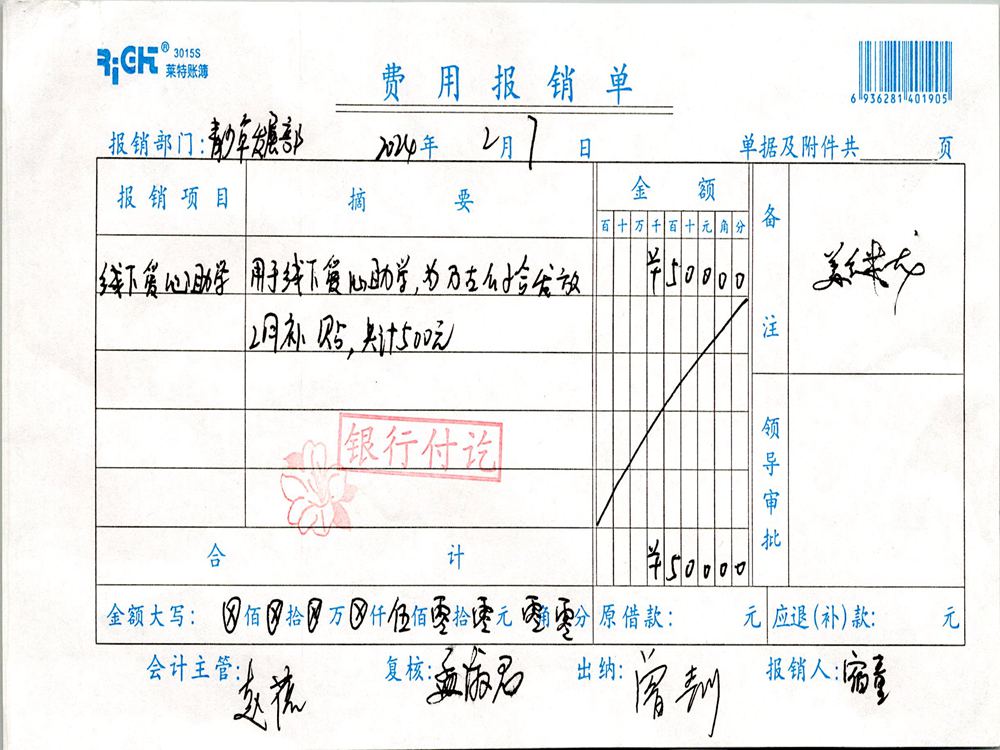 RiGHT® 3015S
莱特账簿
费用报销单
6 936281 401905
报销部门:青少年发展部 2024年 2月7日 单据及附件共 页
报销项目 摘要 金额 备注
百十万千百十元角分
线下爱心助学 用于线下爱心助学,为万古么小哈发放 ¥50000
2月补贴,共计500元
银行付讫
领导审批
合计 ¥50000
金额大写: ⊗佰⊗拾⊗万⊗仟伍佰零拾零元零角零分 原借款: 元 应退(补)款: 元
会计主管: 复核:孟淑君 出纳:曾 报销人:宿童